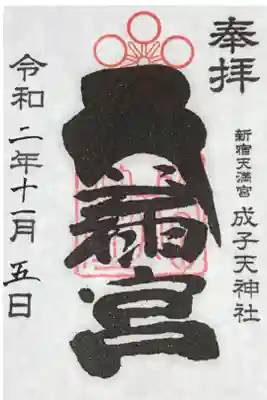 奉拝
新宿天満宮 成子天神社
天満宮
令和二年十一月五日